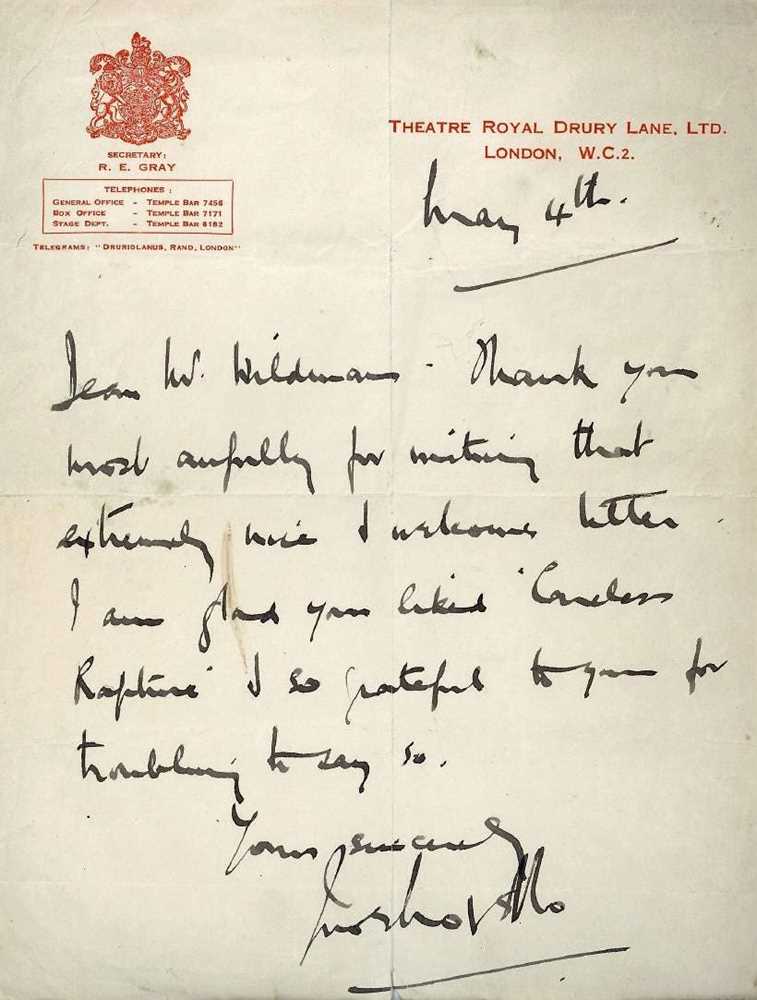 SECRETARY:
R. E. GRAY
TELEPHONES:
GENERAL OFFICE - TEMPLE BAR 7456
BOX OFFICE - TEMPLE BAR 7171
STAGE DEPT. - TEMPLE BAR 6182
TELEGRAMS: "DRURIOLANUS, RAND, LONDON"
THEATRE ROYAL DRURY LANE, LTD.
LONDON, W.C.2.
May 4th.
Dear Mr. Wildman - Thank you
most awfully for writing that
extremely nice & welcome letter.
I am glad you liked 'Careless
Rapture' & so grateful to you for
troubling to say so.
Yours sincerely
Ivor Novello